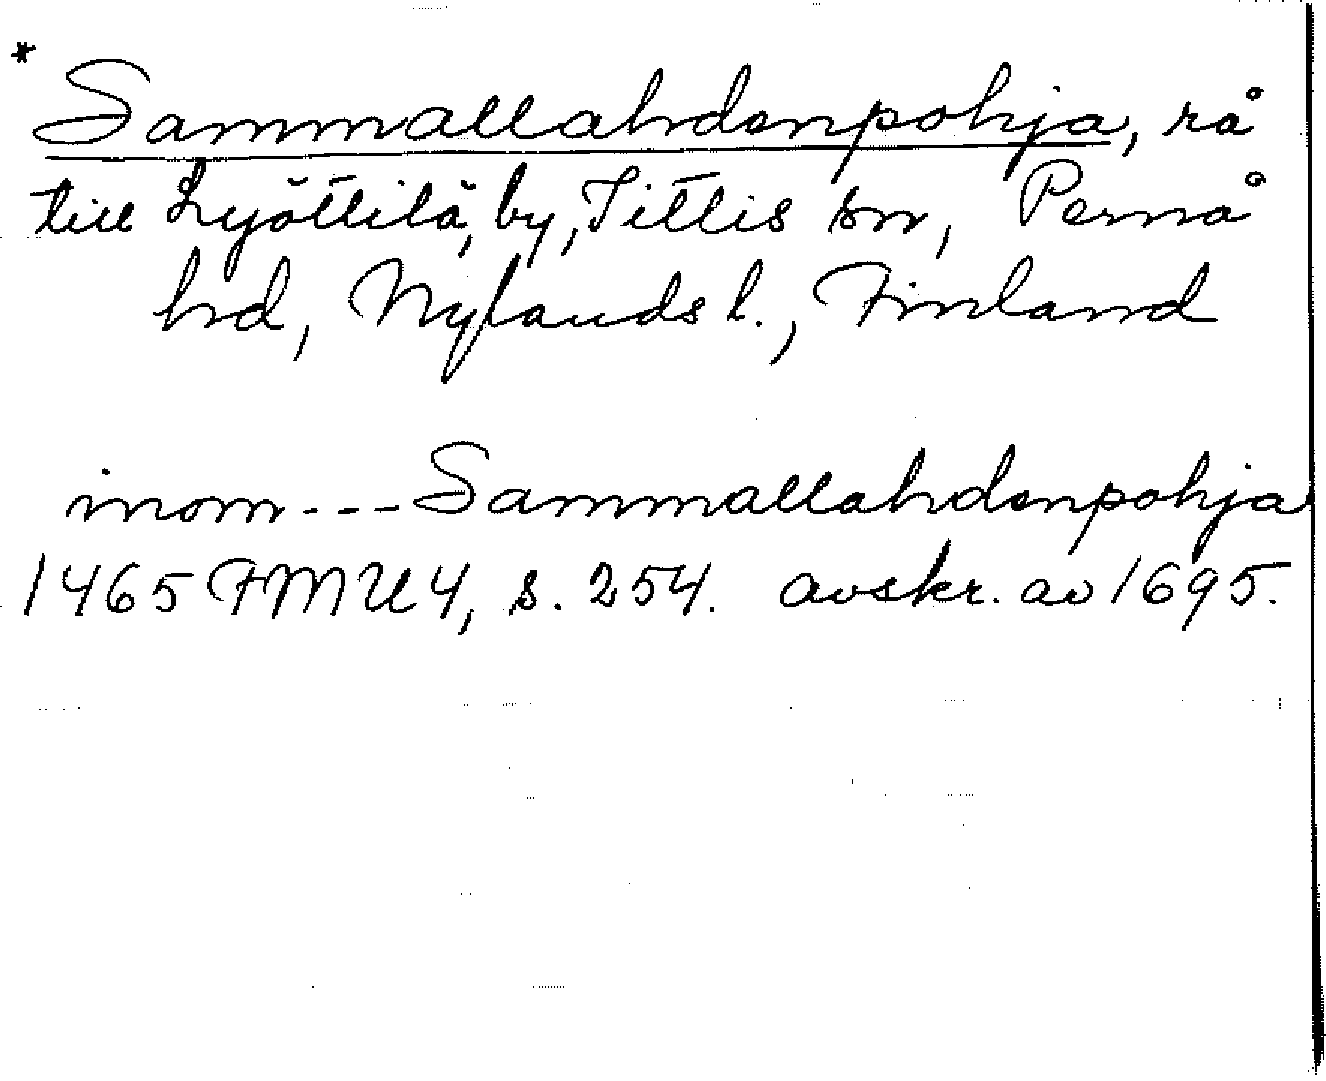 * Sammallahdenpohja, rå
till Lyöttilä, by, Sittis sn, Pernå
hd, Nylands l., Finland
inom --- Sammallahdenpohja
1465 FMU 4, s. 254. avskr. av 1695.